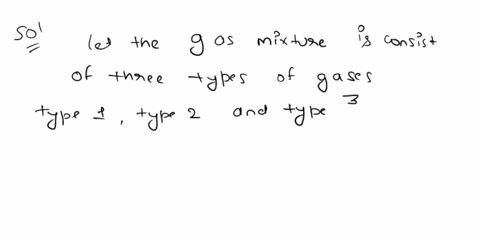 Sol
let the gas mixture is consist
of three types of gases
type 1, type 2 and type 3